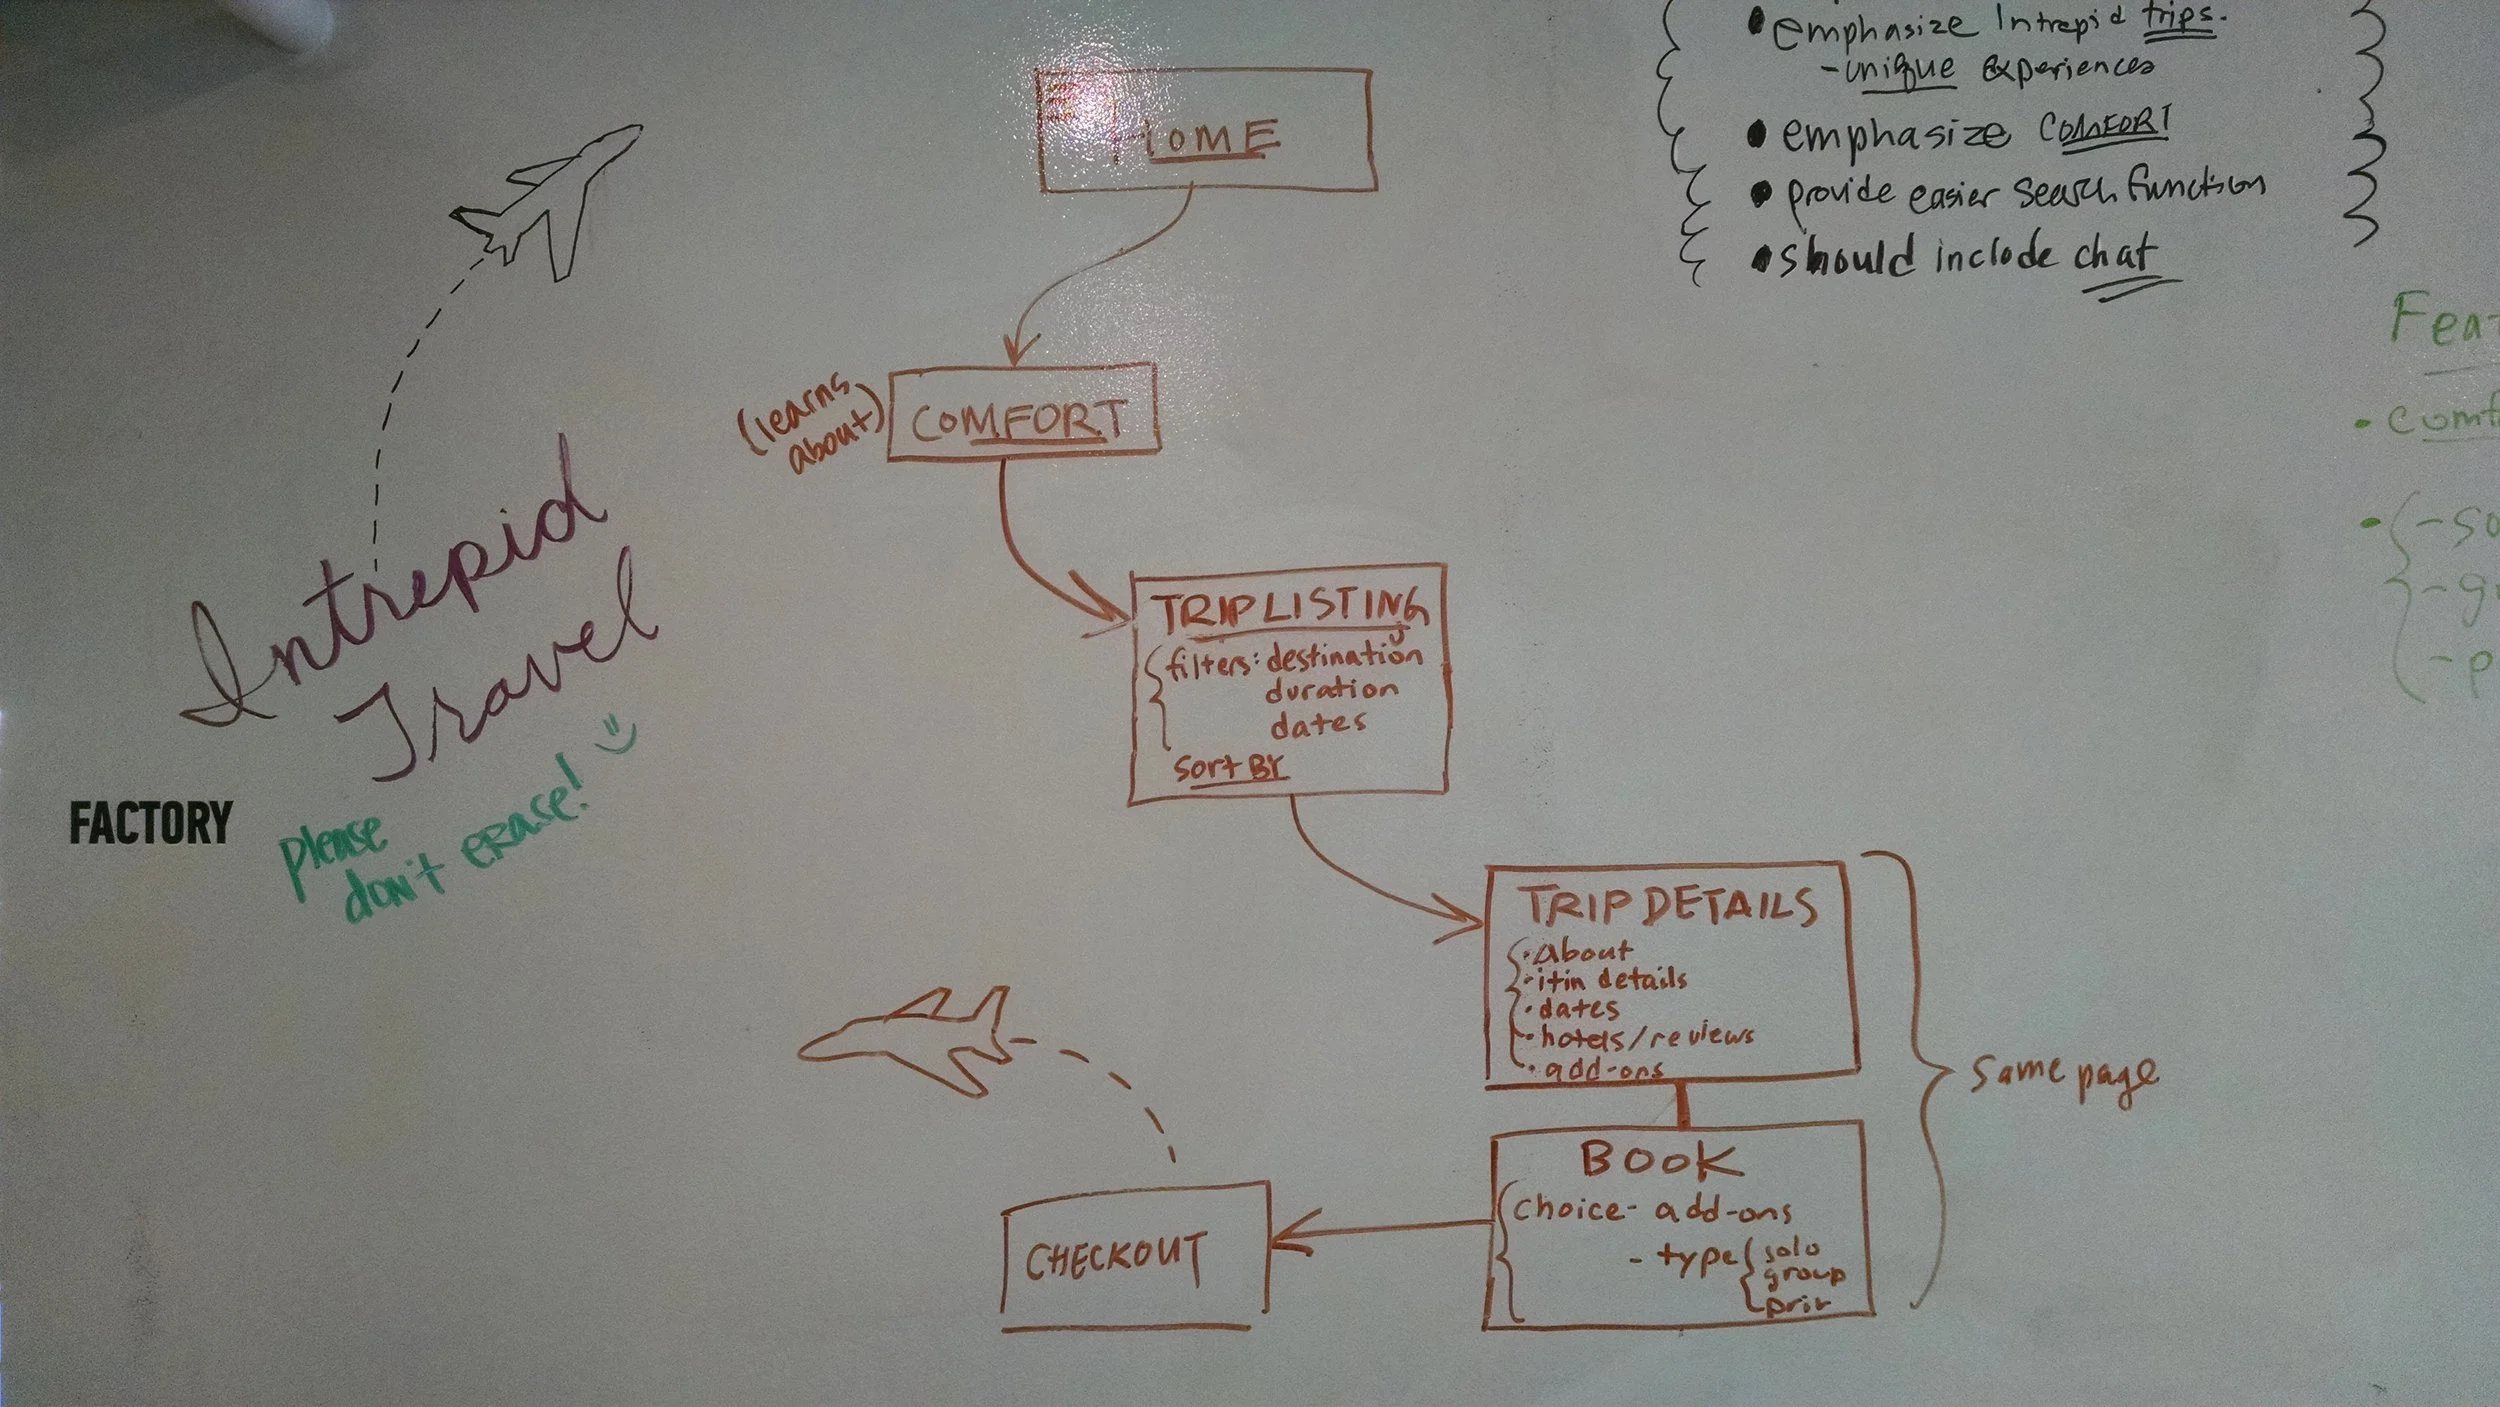 • emphasize Intrepid trips.
- unique experiences
• emphasize COMFORT
• provide easier search function
• should include chat
HOME
(learns
about)
COMFORT
TRIP LISTING
filters: destination
duration
dates
sort BY
TRIP DETAILS
• About
• itin details
• dates
• hotels/reviews
• add-ons
same page
BOOK
choice - add-ons
- type solo
group
priv
CHECKOUT
Intrepid
Travel
please
don't erase!
FACTORY